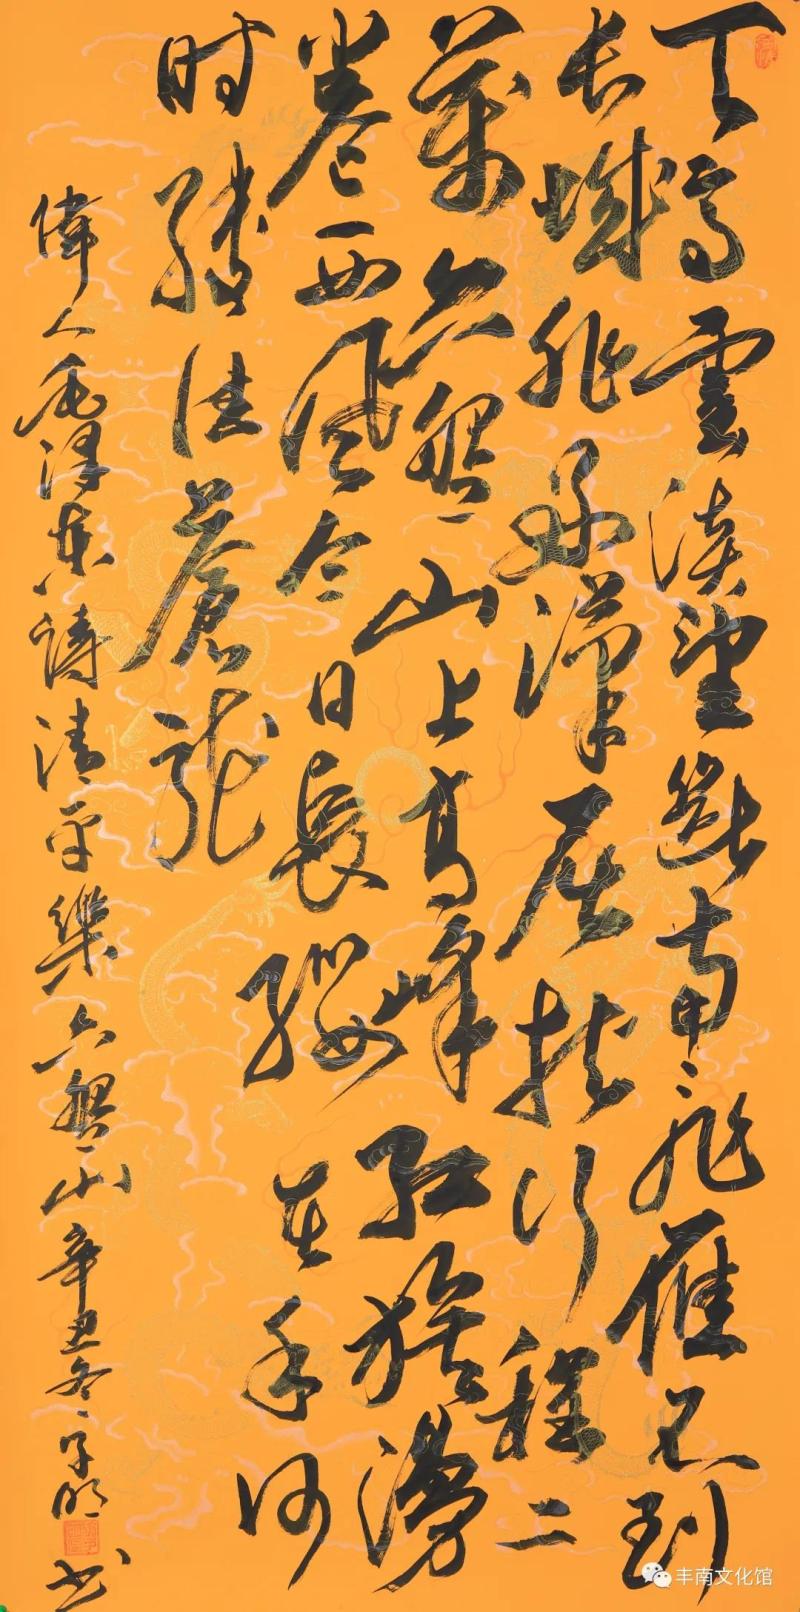 天高雲淡望斷南飛雁不到
長城非好漢屈指行程二
萬六盤山上高峰紅旗漫
卷西風今日長纓在手何
時縛住蒼龍
偉人毛澤東詩清平樂六盤山辛丑冬子明書
丰南文化馆